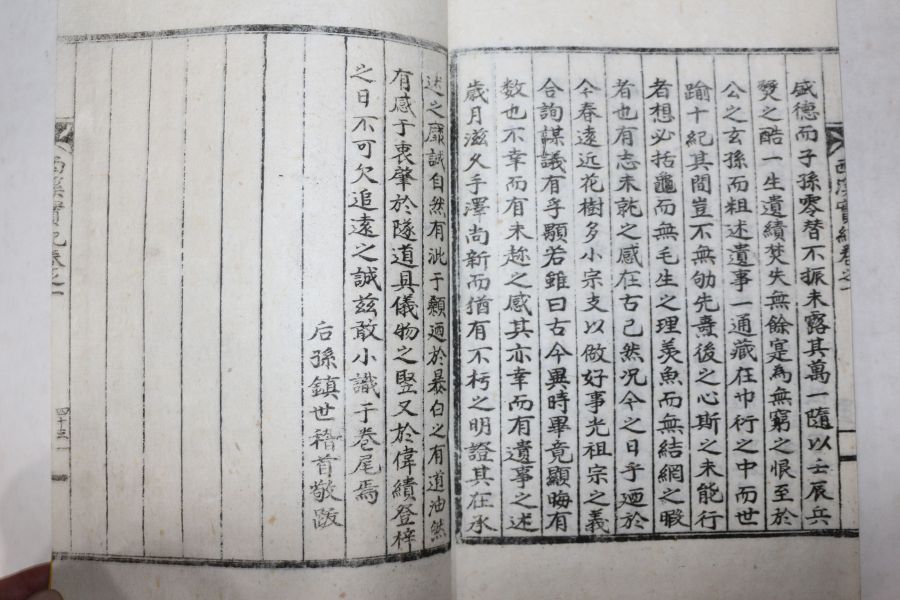 盛德而子孫零替不振未露其萬一隨以壬辰兵
燹之酷一生遺績焚失無餘寔為無窮之恨至於
公之玄孫而粗述遺事一通藏在巾行之中而世
踰十紀其間豈不無劬先壽後之心斯之未能行
者想必括龜而無毛生之理羡魚而無結網之暇
者也有志未就之感在古已然况今之日乎迺於
今春遠近花樹多小宗支以做好事光祖宗之義
合詢謀議有乎顒若雖曰古今異時畢竟顯晦有
数也不幸而有未趂之感其亦幸而有遺事之述
歲月滋久手澤尚新而猶有不朽之明證其在承
述之靡誠自然有泚于顙迺於暴白之有道油然
有感于衷肇於隧道具儀物之竪又於偉績登梓
之日不可欠追遠之誠玆敢小識于卷尾焉
后孫鎮世稽首敬跋
西溪實紀卷之一
四十三